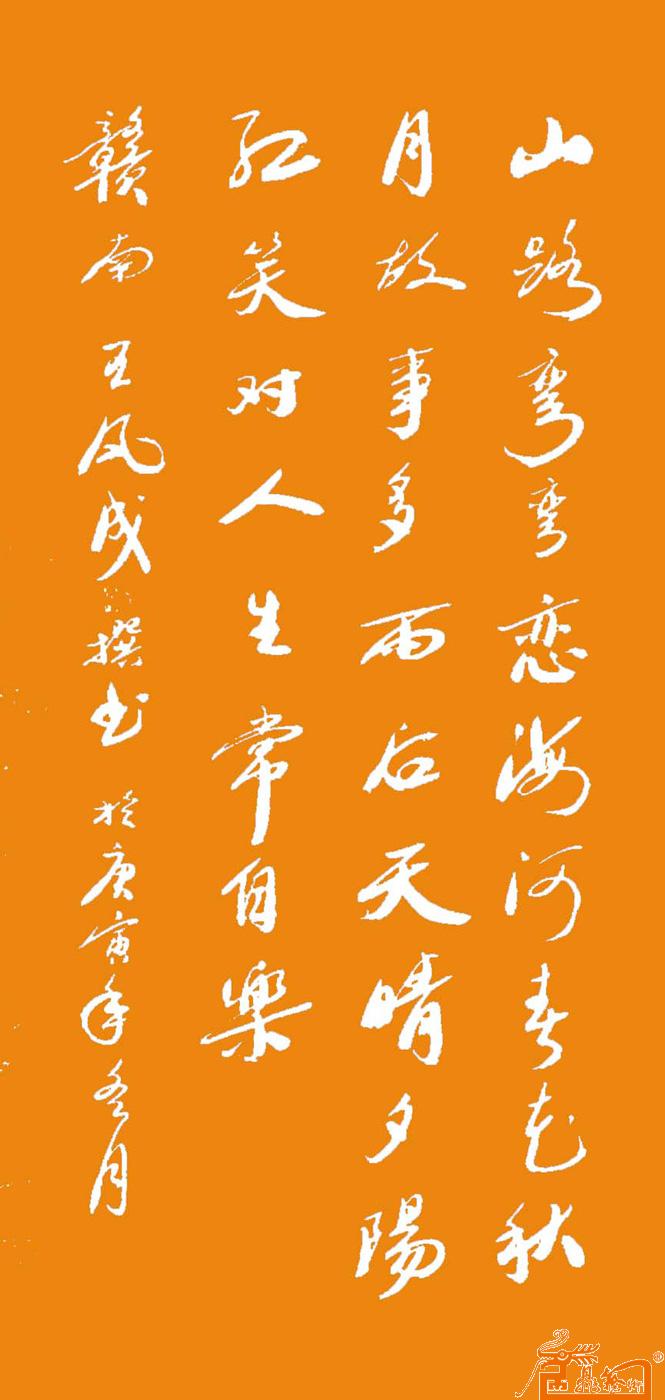 山路弯弯恋海河春花秋
月故事多雨后天晴夕陽
红笑对人生常自樂
赣南王风成撰书於庚寅年冬月